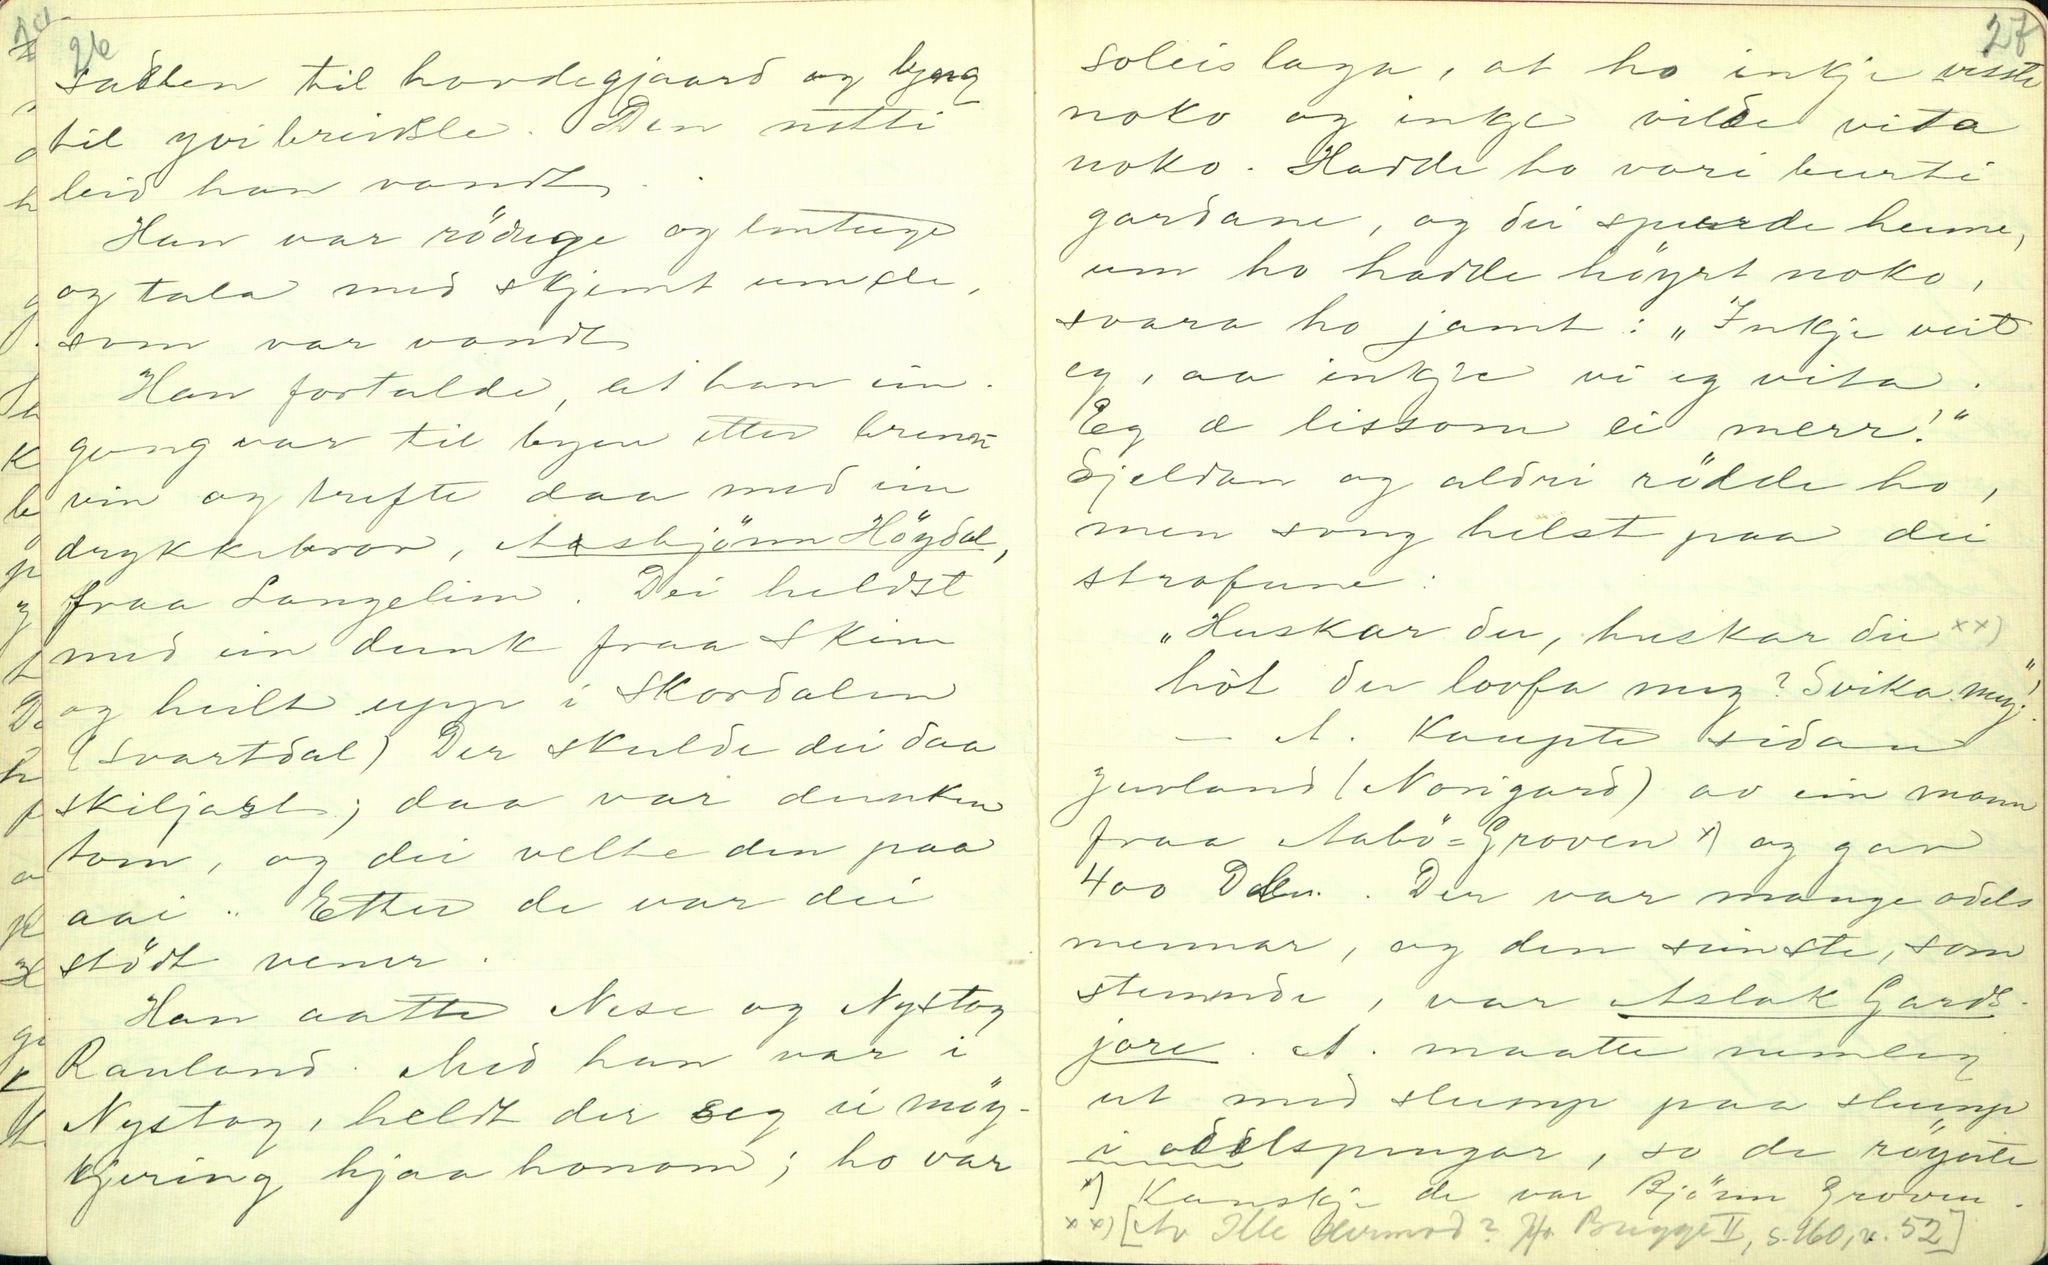 26
sadlen til hovdegjaard og byng
til yvibreidsle. Den notti
leid han vandt.
Han var rödige og lentuge
og tala med skjemt um de,
som var vandt
Han fortalde, at han ein-
gong var til byen etter brenne-
vin og trefte daa med ein
drykkebror, Aasbjönn Höydal,
fraa Langelim. Dei heldst
med ein dunk fraa Skien
og heilt upp i Skordalen
(Svartdal) Der skulde dei daa
skiljast; daa var dunken
tom, og dei velte den paa
aai. Etter de var dei
stödt vener.
Han aatte Nese og Nystog
Rauland. Med han var i
Nystog, heldt der seg ei möy-
kjering hjaa honom; ho var
27
soleis laga, at ho inkje visste
noko og inkje vilde vita
noko. Hadde ho vori burti
gardane, og dei spurde heime,
um ho hadde höyrt noko,
svara ho jamt: „Inkje veit
eg, aa inkje vi eg vita.
Eg æ lissom ei merr!“
Sjeldan og aldri rödde ho,
men song helst paa dei
strofune:
„Huskar du, huskar du xx)
hót du lovfa meg? Svika meg!“
— A. Kaupte sidan
Jurland (Norigard) av ein mann
fraa Aabö-Groven x) og gav
400 Daler. Der var mange odels
mennar, og den seinste, som
stemnde, var Aslak Gards-
jore. A. maatte nemleg
ut med slump paa slump
i odelspengar, so de röynte
x) Kanskje de var Björn Groven.
xx) [Av Ille Hermod? Jfr. Bugge II, s. 160, v. 52]